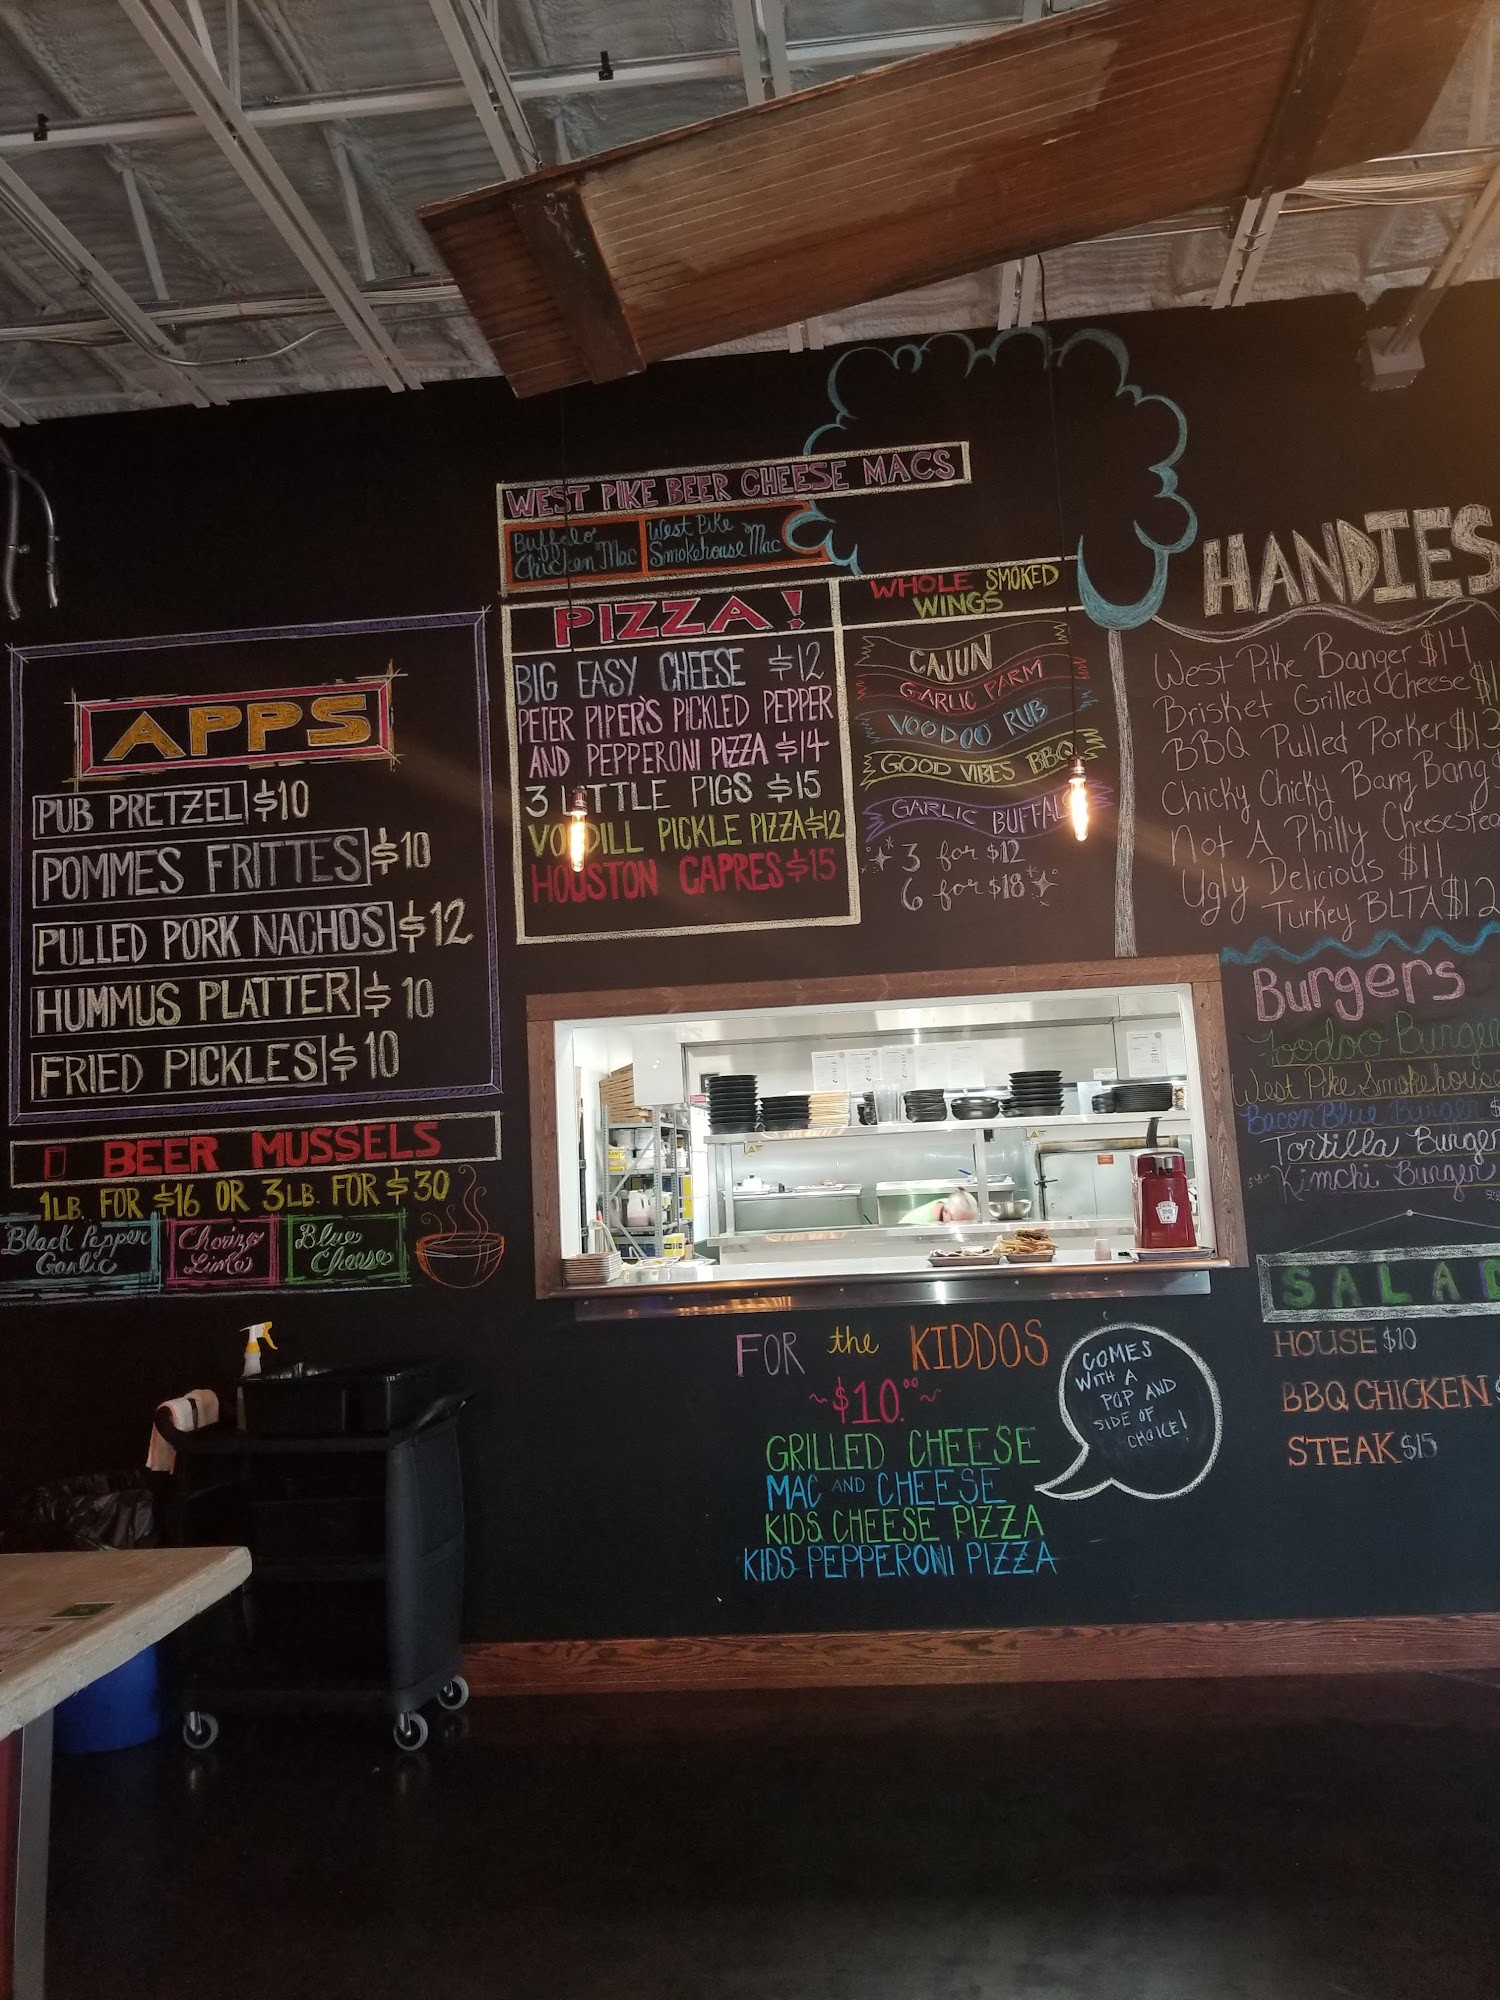 WEST PIKE BEER CHEESE MACS
Buffalo
Chicken Mac
West Pike
Smokehouse Mac
APPS
PUB PRETZEL $10
POMMES FRITTES $10
PULLED PORK NACHOS $12
HUMMUS PLATTER $10
FRIED PICKLES $10
BEER MUSSELS
1LB. FOR $16 OR 3LB. FOR $30
Black Pepper
Garlic
Chorizo
Lime
Blue
Cheese
PIZZA!
BIG EASY CHEESE $12
PETER PIPER'S PICKLED PEPPER
AND PEPPERONI PIZZA $14
3 LITTLE PIGS $15
DILL PICKLE PIZZA $12
HOUSTON CAPRES $15
WHOLE SMOKED
WINGS
CAJUN
GARLIC PARM
VOODOO RUB
GOOD VIBES BBQ
GARLIC BUFFAL
3 for $12
6 for $18
HANDIES
West Pike Banger $14
Brisket Grilled Cheese $1
BBQ Pulled Porker $13
Chicky Chicky Bang Bang $
Not A Philly Cheesestea
Ugly Delicious $11
Turkey BLTA $12
Burgers
Voodoo Burger
West Pike Smokehouse
Bacon Blue Burger $
Tortilla Burger
Kimchi Burger
SALAD
HOUSE $10
BBQ CHICKEN $
STEAK $15
FOR the KIDDOS
~$10.00~
GRILLED CHEESE
MAC AND CHEESE
KIDS CHEESE PIZZA
KIDS PEPPERONI PIZZA
COMES
WITH A
POP AND
SIDE OF
CHOICE!